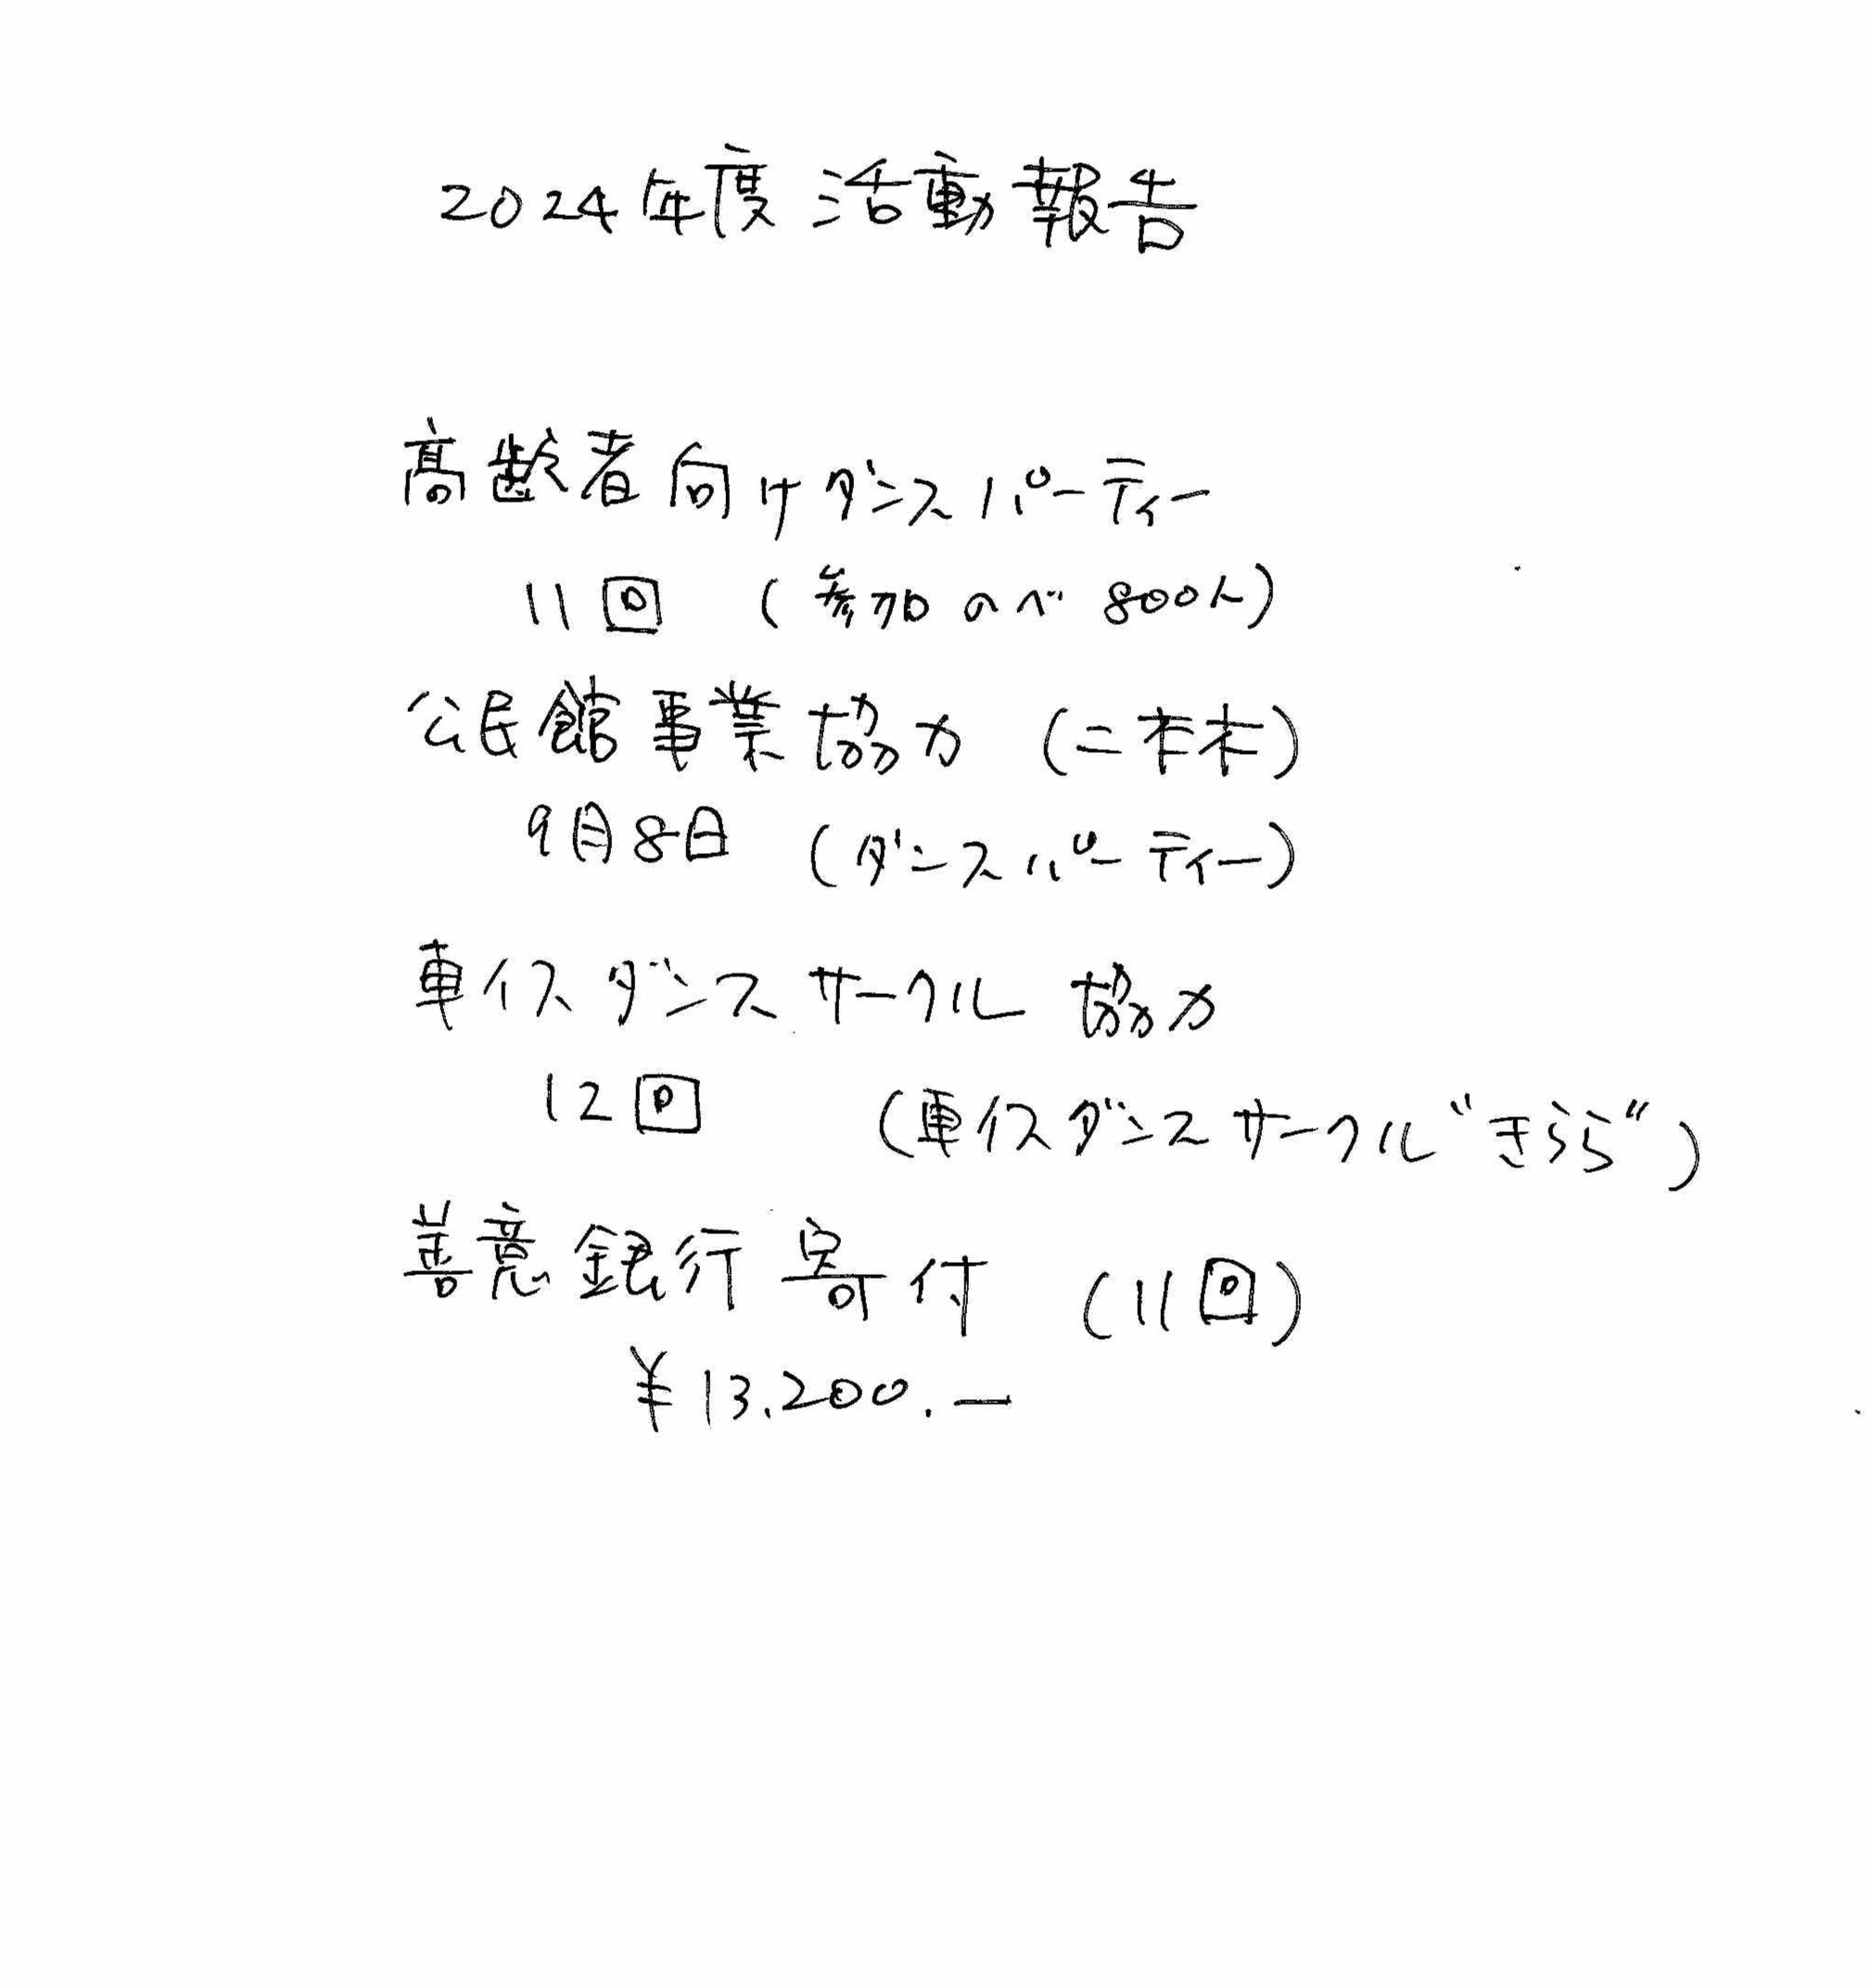 2024年度 活動報告
高齢者向けダンスパーティー
11回 (参加のべ 800人)
公民館事業協力 (二本木)
9月8日 (ダンスパーティー)
車イスダンスサークル 協力
12回 (車イスダンスサークル"きらら")
善意銀行寄付 (11回)
¥13.200.ー